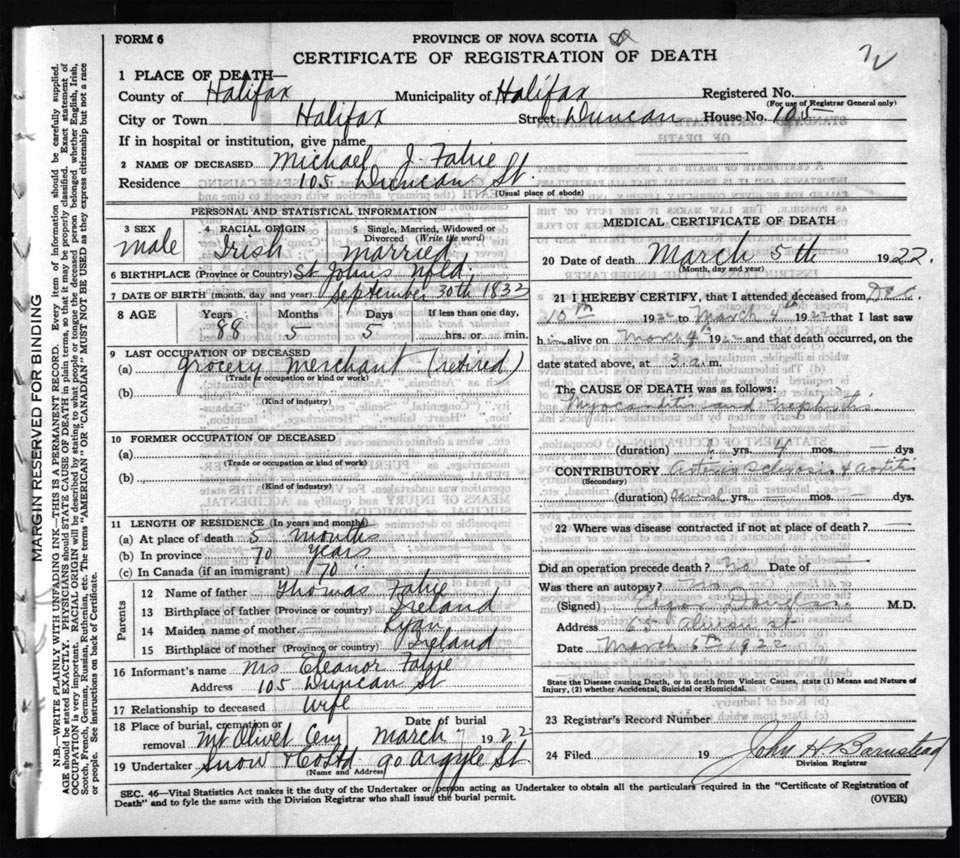 FORM 6
PROVINCE OF NOVA SCOTIA
CERTIFICATE OF REGISTRATION OF DEATH
1 PLACE OF DEATH—
County of Halifax Municipality of Halifax Registered No.
(For use of Registrar General only)
City or Town Halifax Street Duncan House No. 105
If in hospital or institution, give name
2 NAME OF DECEASED Michael J. Fahie
Residence 105 Duncan St.
(Usual place of abode)
PERSONAL AND STATISTICAL INFORMATION
3 SEX 4 RACIAL ORIGIN 5 Single, Married, Widowed or
Divorced (Write the word)
male Irish Married
6 BIRTHPLACE (Province or Country) St Johns Nfld.
7 DATE OF BIRTH (month, day and year) September 30th 1832
8 AGE Years Months Days If less than one day,
88 5 5 hrs. or min.
9 LAST OCCUPATION OF DECEASED
(a) Grocery Merchant (retired)
(Trade or occupation or kind of work)
(b)
(Kind of industry)
10 FORMER OCCUPATION OF DECEASED
(a)
(Trade or occupation or kind of work)
(b)
(Kind of industry)
11 LENGTH OF RESIDENCE (In years and months)
(a) At place of death 5 months
(b) In province 70 years
(c) In Canada (if an immigrant) 70
Parents
12 Name of father Thomas Fahie
13 Birthplace of father (Province or country) Ireland
14 Maiden name of mother Ryan
15 Birthplace of mother (Province or country) Ireland
16 Informant's name Mrs Eleanor Fahie
Address 105 Duncan St
17 Relationship to deceased Wife
18 Place of burial, cremation or removal Mt Olivet Cemy Date of burial March 7 1922
19 Undertaker Snow & Co Ltd 90 Argyle St
(Name and Address)
MEDICAL CERTIFICATE OF DEATH
20 Date of death March 5th 1922.
(Month, day and year)
21 I HEREBY CERTIFY, that I attended deceased from Dec.
10th 1922 to March 4th 1922 that I last saw
h alive on 1922 and that death occurred, on
date stated above, at 3 a. m
The CAUSE OF DEATH was as follows:
Myocarditis and nephritis
(duration) yrs. 4 mos. — dys.
CONTRIBUTORY Arterio Sclerosis &
(Secondary)
(duration) Several yrs. — mos. — dys.
22 Where was disease contracted if not at place of death? —
Did an operation precede death? No Date of —
Was there an autopsy?
(Signed) M.D.
Address 65 St
Date March 6th 1922
State the Disease causing Death, or in death from Violent Causes, state (1) Means and Nature of
Injury, (2) whether Accidental, Suicidal or Homicidal.
23 Registrar's Record Number
24 Filed 19 John H. Barnstead
Division Registrar
SEC. 46—Vital Statistics Act makes it the duty of the Undertaker or person acting as Undertaker to obtain all the particulars required in the "Certificate of Registration of
Death" and to fyle the same with the Division Registrar who shall issue the burial permit.
(OVER)
MARGIN RESERVED FOR BINDING
N.B.—WRITE PLAINLY WITH UNFADING INK—THIS IS A PERMANENT RECORD. Every item of information should be carefully supplied.
AGE should be stated EXACTLY. PHYSICIANS should STATE CAUSE OF DEATH in plain terms, so that it may be properly classified. Exact statement of
OCCUPATION is very important. RACIAL ORIGIN will be described by stating to what people or tongue the deceased person belonged whether English, Irish,
Scotch, French, German, Russian, Ruthenian, etc. The terms "AMERICAN" OR "CANADIAN" MUST NOT BE USED as they express citizenship but not a race
or people. See instructions on back of Certificate.